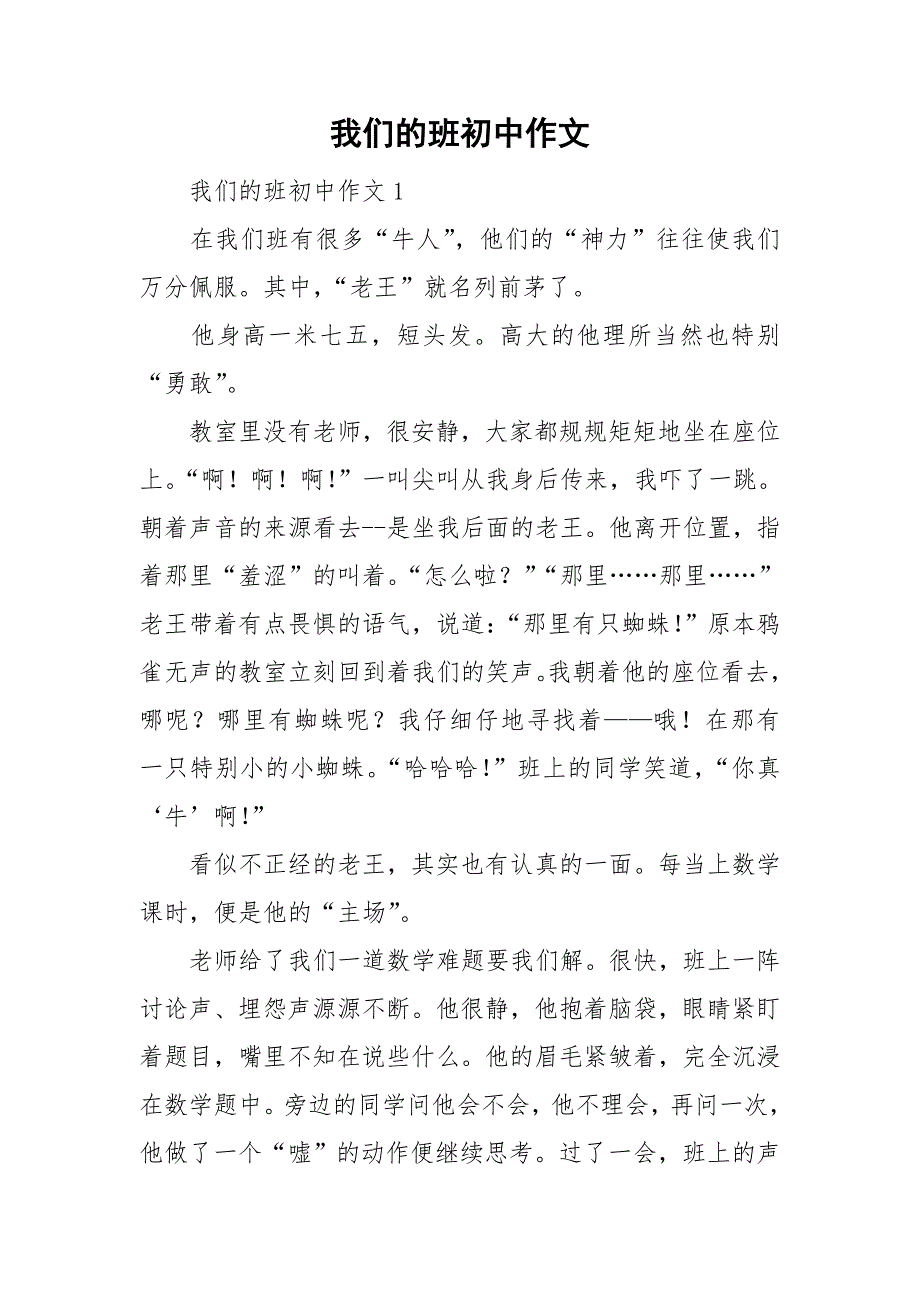 我们的班初中作文
我们的班初中作文1
在我们班有很多“牛人”，他们的“神力”往往使我们
万分佩服。其中，“老王”就名列前茅了。
他身高一米七五，短头发。高大的他理所当然也特别
“勇敢”。
教室里没有老师，很安静，大家都规规矩矩地坐在座位
上。“啊！啊！啊！”一叫尖叫从我身后传来，我吓了一跳。
朝着声音的来源看去--是坐我后面的老王。他离开位置，指
着那里“羞涩”的叫着。“怎么啦？”“那里……那里……”
老王带着有点畏惧的语气，说道：“那里有只蜘蛛！”原本鸦
雀无声的教室立刻回到着我们的笑声。我朝着他的座位看去，
哪呢？哪里有蜘蛛呢？我仔细仔地寻找着——哦！在那有
一只特别小的小蜘蛛。“哈哈哈！”班上的同学笑道，“你真
‘牛’啊！”
看似不正经的老王，其实也有认真的一面。每当上数学
课时，便是他的“主场”。
老师给了我们一道数学难题要我们解。很快，班上一阵
讨论声、埋怨声源源不断。他很静，他抱着脑袋，眼睛紧盯
着题目，嘴里不知在说些什么。他的眉毛紧皱着，完全沉浸
在数学题中。旁边的同学问他会不会，他不理会，再问一次，
他做了一个“嘘”的动作便继续思考。过了一会，班上的声